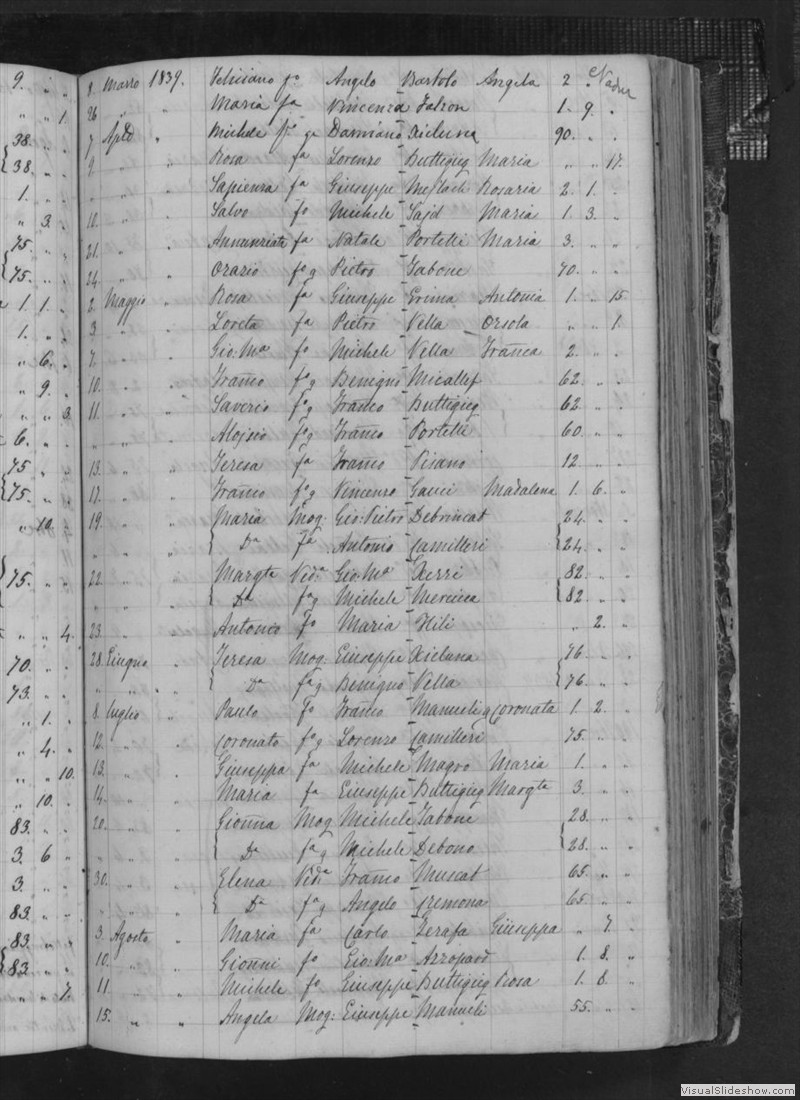 8. Marzo 1839. Feliciano fo Angelo Bartolo Angela 2 " Nadur
26 " " Maria fa Vincenza Falzon 1. 9. "
7 Aple " Michele fo q Damiano Xicluna 90. " "
9. " " Rosa fa Lorenzo Buttigieg Maria " " 17.
" " " Sapienza fa Giuseppe Rosaria 2. 1. "
10. " " Salvo fo Michele Said Maria 1. 3. "
21. " " Annunziata fa Natale Portelli Maria 3. " "
24. " " Orazio fo q Pietro Tabone 70. " "
2. Maggio " Rosa fa Giuseppe Grima Antonia 1. " 15.
3 " " Loreta fa Pietro Vella Orsola " " 1.
7. " " Gio: Ma fo Michele Vella Franca 2. " "
10. " " Franco fo q Benigno Micallef 62. " "
11. " " Saverio fo q Franco Buttigieg 62. " "
" " " Aloisio fo q Franco Portelli 60. " "
13. " " Teresa fa Franco Pisano 12. " "
17. " " Franco fo q Vincenzo Gauci Madalena 1. 6. "
19. " " Maria Mog: Gio: Pietro Debrincat 24. " "
" " " { Da fa Antonio Camilleri {24. " "
22. " " Margta Veda Gio: Ma Xerri 82. " "
" " " { Da fa q Michele Mercieca {82. " "
23. " " Antonio fo Maria Hili " 2. "
28. Giugno " Teresa Mog: Giuseppe Xicluna 76. " "
" " " { Da fa q Benigno Vella {76. " "
8. Luglio " Paulo fo Franco Manueli q Coronata 1. 2. "
12. " " Coronato fo q Lorenzo Camilleri 75. " "
13. " " Giuseppa fa Michele Magro Maria 1. " "
14. " " Maria fa Giuseppe Buttigieg Margta 3. " "
20. " " Gionna Mog Michele Tabone 28. " "
" " " { Da fa q Michele Debono {28. " "
30. " " Elena Veda Franco Muscat 65. " "
" " " { Da fa q Angelo Cremona 65. " "
3. Agosto " Maria fa Carlo Zerafa Giuseppa " 7. "
10. " " Gionni fo Gio: Ma Azzopard 1. 8. "
11. " " Michele fo Giuseppe Buttigieg Rosa 1. 8. "
15. " " Angela Mog: Giuseppe Manueli 55. " "
9. " "
" " 1.
38. " "
{38. " "
1. " "
" 3. "
75. " "
{75. " "
1 1. "
1. " "
" 6. "
" 9. "
" " 3.
6. " "
75 " "
{75. " "
" 10. "
{75. " "
" " 4.
70. " "
73. " "
" 1. "
" 4. "
" " 10.
" 10. "
83. " "
3. 6 "
3. " "
83. " "
83. " "
{83. " "
" " 7.
VisualSlideshow.com